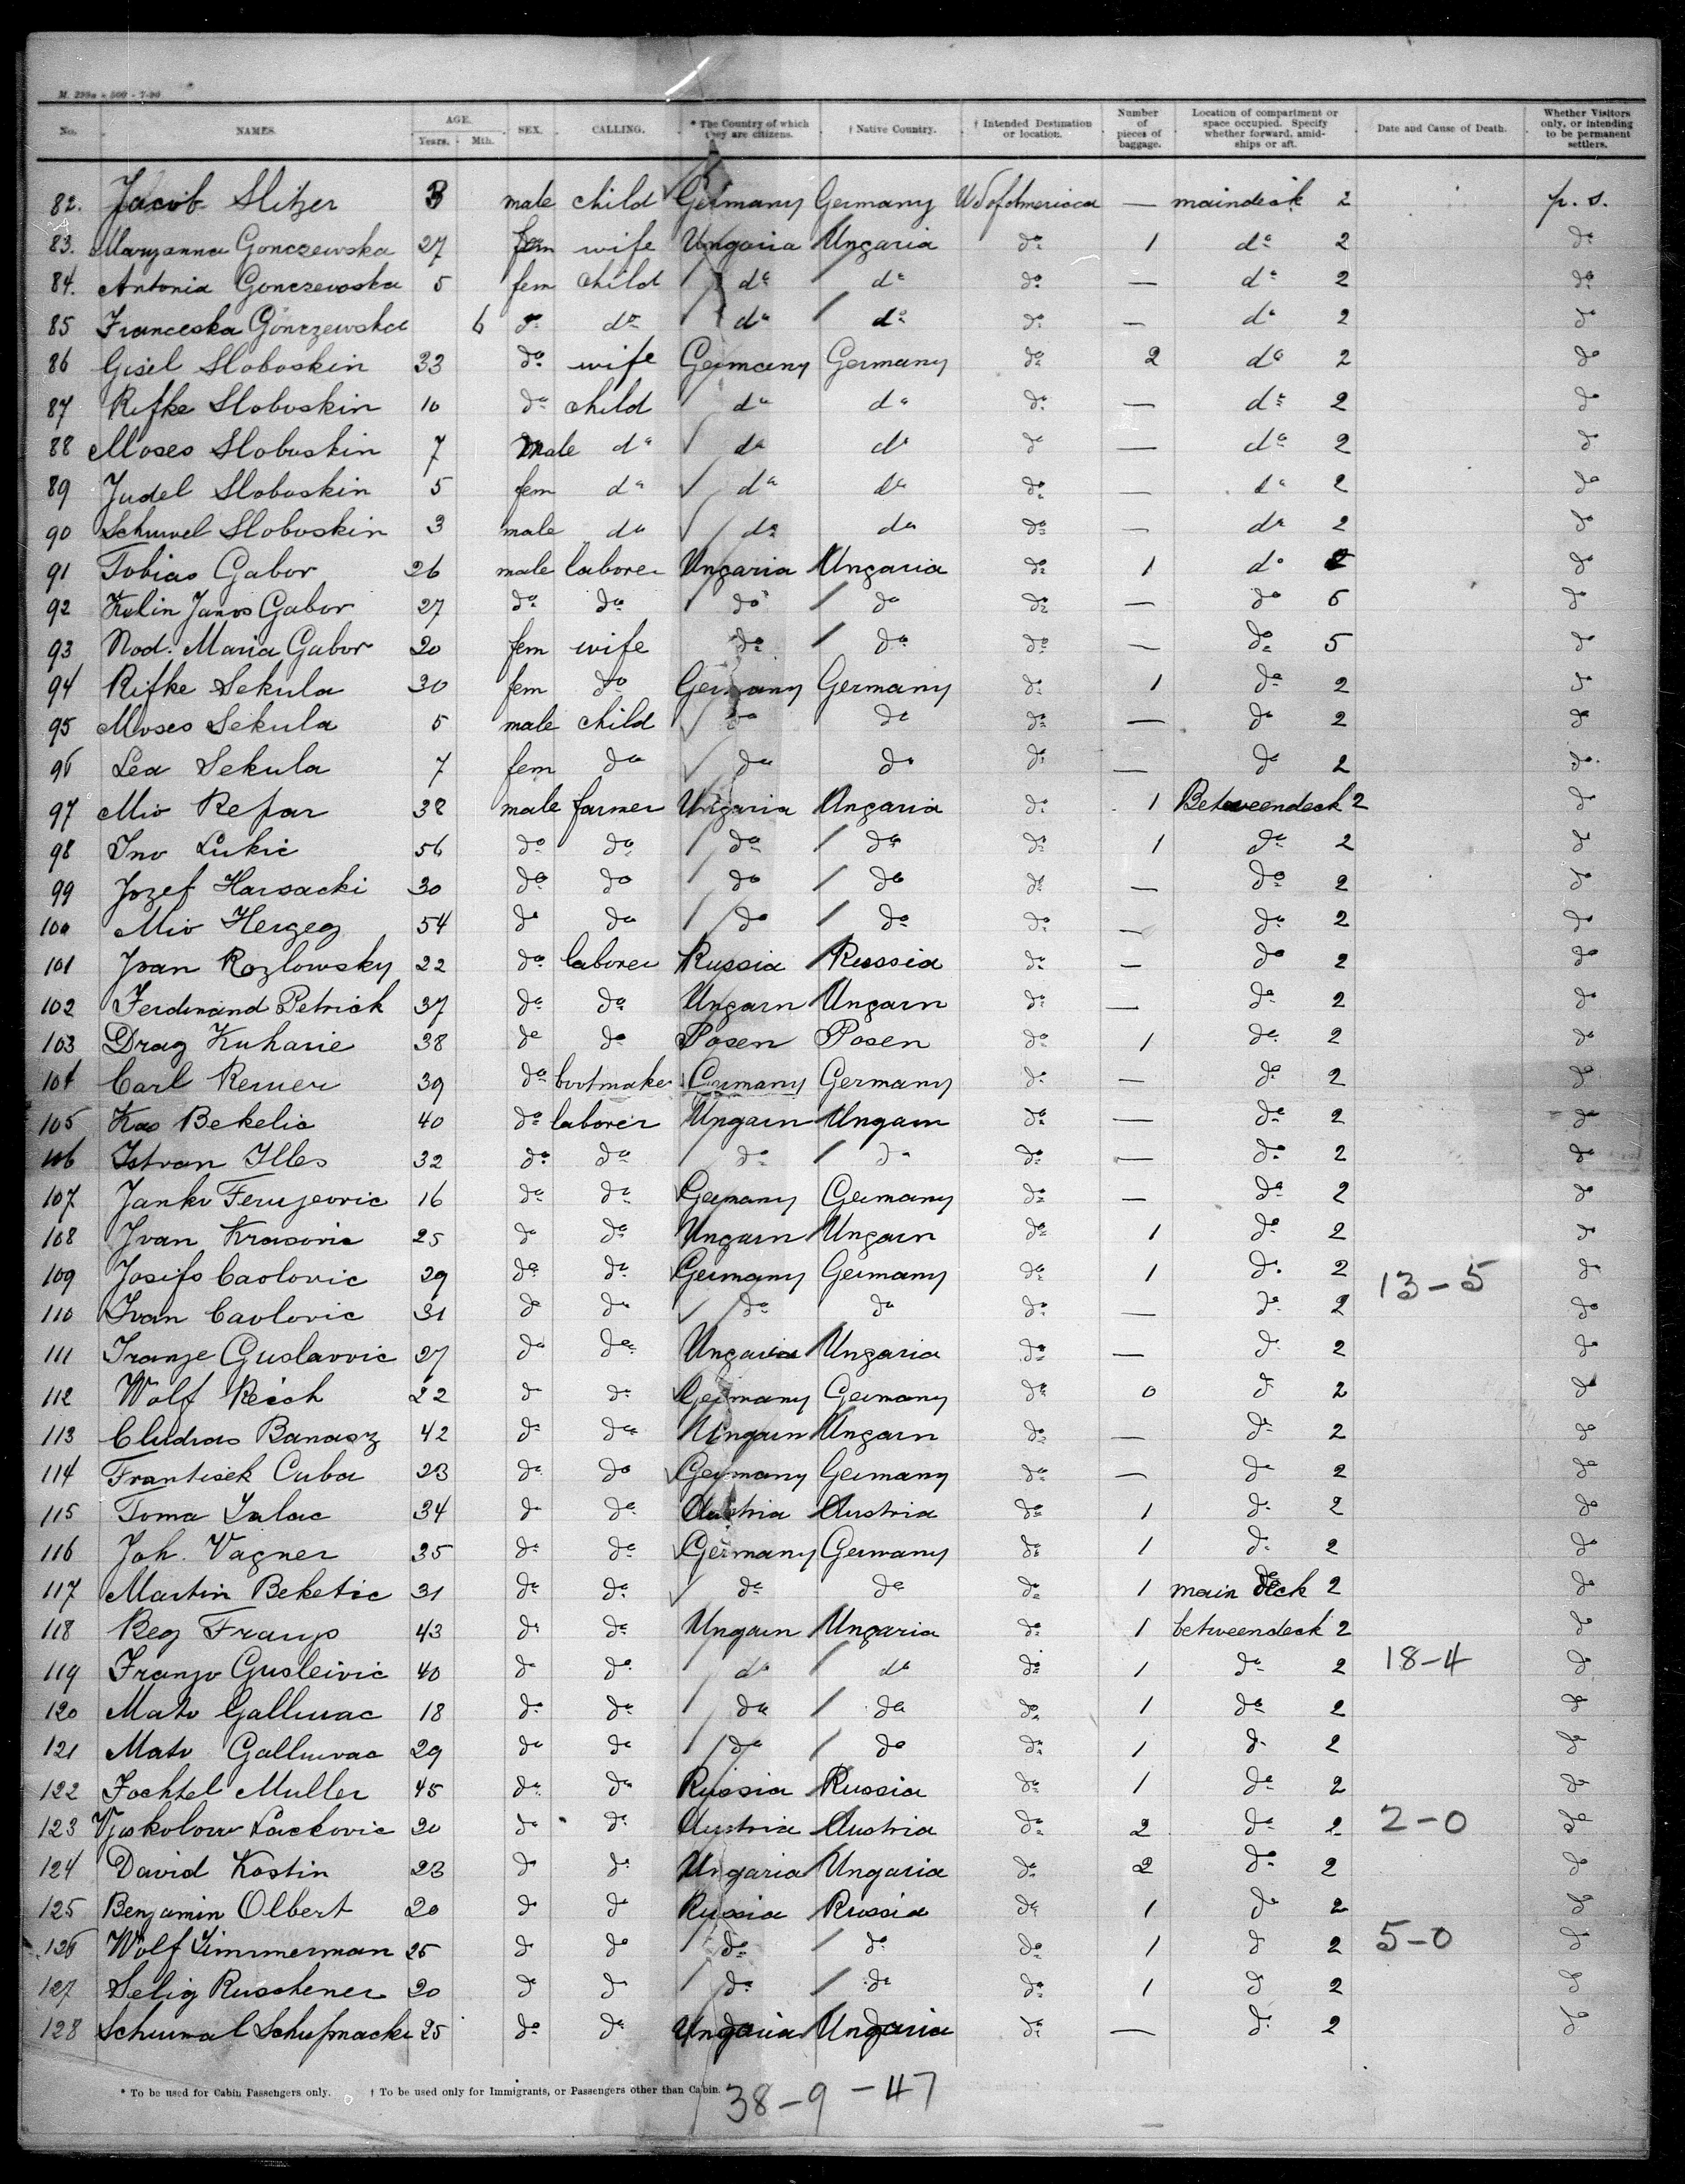 M. 299a - 500 - 7-90
No. NAMES. AGE. Years. Mth. SEX. CALLING. * The Country of which they are citizens. † Native Country. † Intended Destination or location. Number of pieces of baggage. Location of compartment or space occupied. Specify whether forward, amidships or aft. Date and Cause of Death. Whether Visitors only, or intending to be permanent settlers.
82. Jacob Slitzer 3 male child Germany Germany US of America — maindeck 2 p. s.
83. Maryanna Gonczewska 27 fem wife Ungaria Ungaria do 1 do 2 do
84. Antonia Gonczewska 5 fem child do do do — do 2 do
85 Franceska Gonczewska 6 do do do do do — do 2 do
86 Gisel Sloboskin 33 do wife Germany Germany do 2 do 2 do
87 Rifke Sloboskin 10 do child do do do — do 2 do
88 Moses Sloboskin 7 male do do do do — do 2 do
89 Judel Sloboskin 5 fem do do do do — do 2 do
90 Schmuel Sloboskin 3 male do do do do — do 2 do
91 Tobias Gabor 26 male laborer Ungaria Ungaria do 1 do do
92 Kulin Janos Gabor 27 do do do do do — do 5 do
93 Nod. Maria Gabor 20 fem wife do do do — do 5 do
94 Rifke Sekula 30 fem do Germany Germany do 1 do 2 do
95 Moses Sekula 5 male child do do do — do 2 do
96 Lea Sekula 7 fem do do do do — do 2 do
97 Mio Repar 38 male farmer Ungaria Ungaria do 1 Betweendeck 2 do
98 Ivo Lukic 56 do do do do do 1 do 2 do
99 Jozef Harsacki 30 do do do do do — do 2 do
100 Mio Hergeg 54 do do do do do — do 2 do
101 Jvan Rozlowsky 22 do laborer Russia Russia do — do 2 do
102 Ferdinand Petrick 37 do do Ungarn Ungarn do — do 2 do
103 Drag Kuharie 38 do do Posen Posen do 1 do 2 do
104 Carl Remer 39 do bootmaker Germany Germany do — do 2 do
105 Kas Bekelic 40 do laborer Ungarn Ungarn do — do 2 do
106 Istvan Illes 32 do do do do do — do 2 do
107 Janko 16 do do Germany Germany do — do 2 do
108 Jvan Krasovic 25 do do Ungarn Ungarn do 1 do 2 do
109 Josifo Caolovic 29 do do Germany Germany do 1 do 2 13-5 do
110 Ivan Cavlovic 31 do do do do do — do 2 do
111 Franje Guslavvic 27 do do Ungaria Ungaria do — do 2 do
112 Wolf Reich 22 do do Germany Germany do 0 do 2 do
113 Banasz 42 do do Ungarn Ungarn do — do 2 do
114 Frantisek Cuba 23 do do Germany Germany do — do 2 do
115 Toma 34 do do Austria Austria do 1 do 2 do
116 Joh. Vagner 35 do do Germany Germany do 1 do 2 do
117 Martin Beketic 31 do do do do do 1 main deck 2 do
118 Beg Franjo 43 do do Ungarn Ungaria do 1 betweendeck 2 do
119 Franjo Gusleivic 40 do do do do do 1 do 2 18-4 do
120 Mato Galluvac 18 do do do do do 1 do 2 do
121 Mato Galluvac 29 do do do do do 1 do 2 do
122 Fochtel Muller 45 do do Russia Russia do 1 do 2 do
123 Lackovic 20 do do Austria Austria do 2 do 2 2-0 do
124 David Kostin 23 do do Ungaria Ungaria do 2 do 2 do
125 Benjamin Olbert 20 do do Russia Russia do 1 do 2 do
126 Wolf Zimmerman 25 do do do do do 1 do 2 5-0 do
127 Selig Ruschener 20 do do do do do 1 do 2 do
128 25 do do Ungaria Ungaria do — do 2 do
* To be used for Cabin Passengers only. † To be used only for Immigrants, or Passengers other than Cabin.
38-9-47